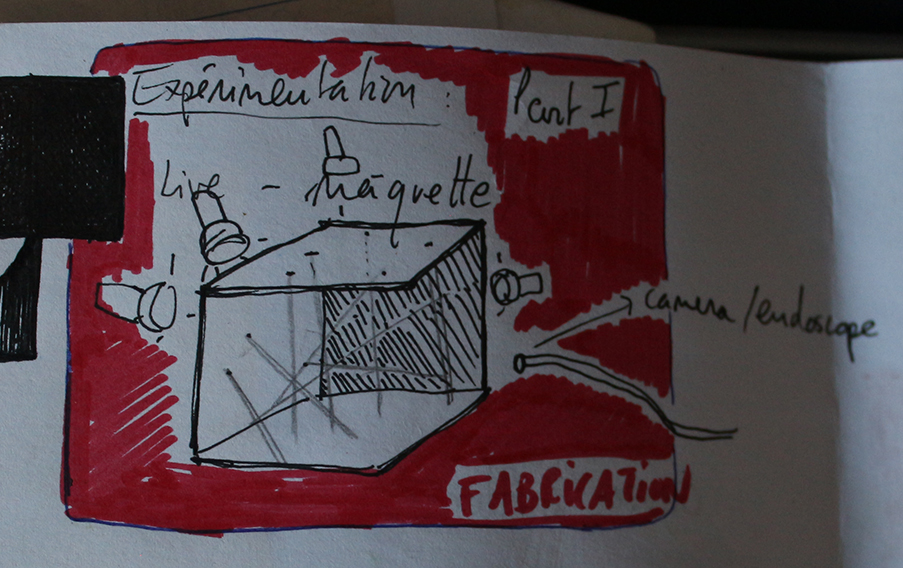 Expérimentation :
Part I
Live - Maquette
camera/endoscope
FABRICATION